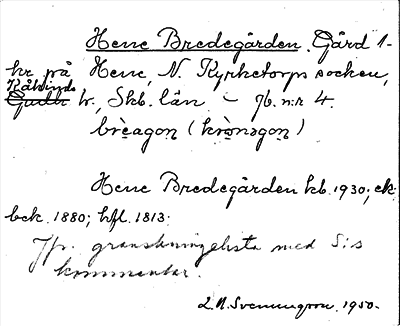 Hene Bredegården. Gård 1-
hr på Hene, N. Kyrketorps socken,
Kåkinds
Gudh. hr., Skb. län. – Jb. n:r 4.
brèagọn (krònǝgọn)
Hene Bredegården kb. 1930; ek.
bck. 1880; hfl. 1813.
Jfr. granskningslista med Sis
kommentar.
L.N. Svenungson. 1950.